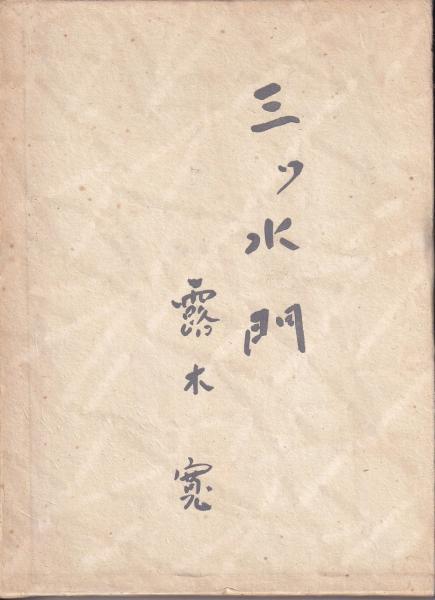 三ツ水門
露木寛